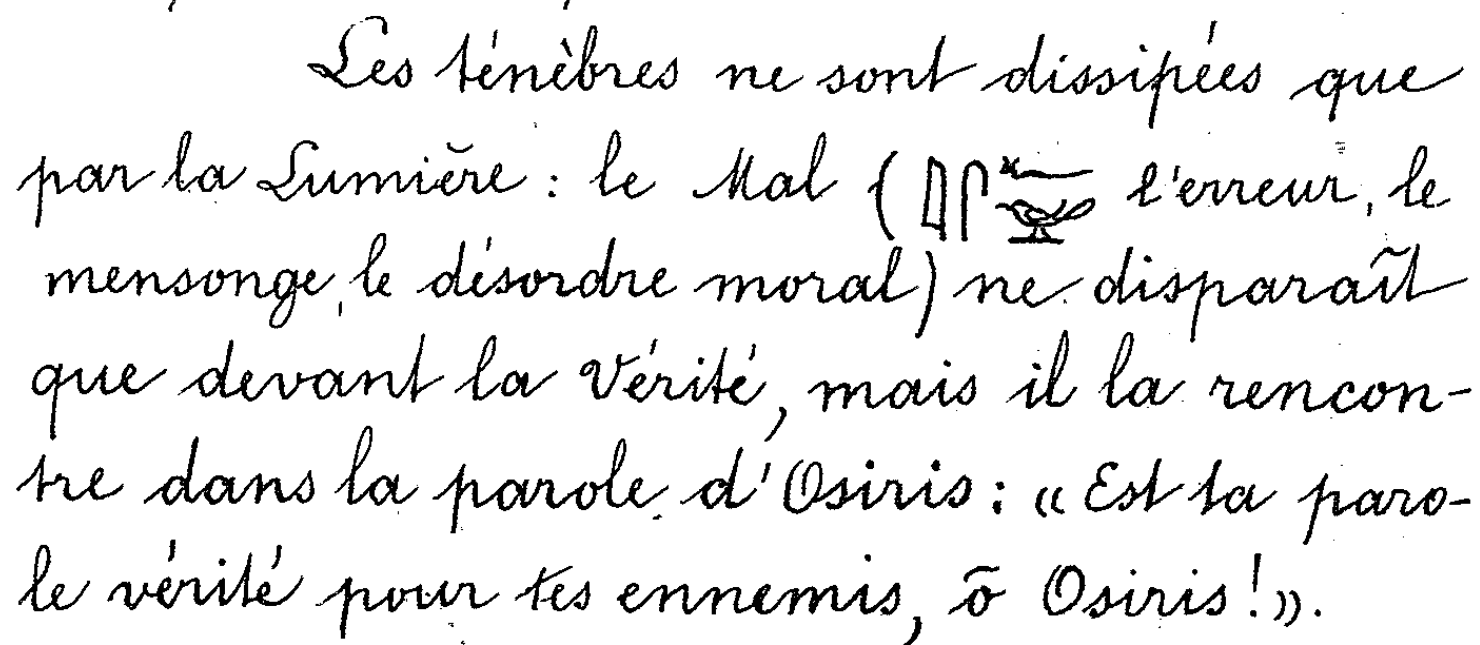 Les ténèbres ne sont dissipées que
par la Lumière : le Mal ( l'erreur, le
mensonge, le désordre moral) ne disparaît
que devant la Vérité, mais il la rencon-
tre dans la parole d'Osiris : « Est ta paro-
le vérité pour tes ennemis, ô Osiris ! ».